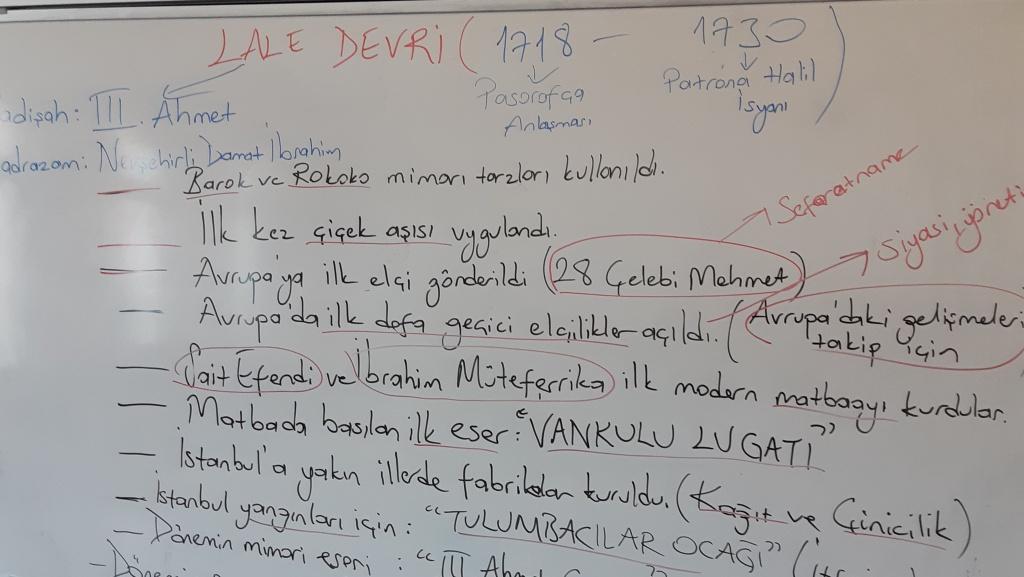 LALE DEVRİ ( 1718 – 1730 )
Pasorofça Anlaşması
Patrona Halil İsyanı
adişah: III. Ahmet
adrazam: Nevşehirli Damat İbrahim
— Barok ve Rokoko mimari tarzları kullanıldı.
— İlk kez çiçek aşısı uygulandı.
Sefaratname
— Avrupa'ya ilk elçi gönderildi (28 Çelebi Mehmet)
siyasi,
— Avrupa'da ilk defa geçici elçilikler açıldı. (Avrupa'daki gelişmeleri
takip için
— Sait Efendi ve İbrahim Müteferrika ilk modern matbaayı kurdular.
— Matbada basılan ilk eser: "VANKULU LUGATI"
— İstanbul'a yakın illerde fabrikalar kuruldu. (Kağıt ve Çinicilik)
— İstanbul yangınları için: "TULUMBACILAR OCAĞI"
— Dönemin mimari eseri : "III Ahmet